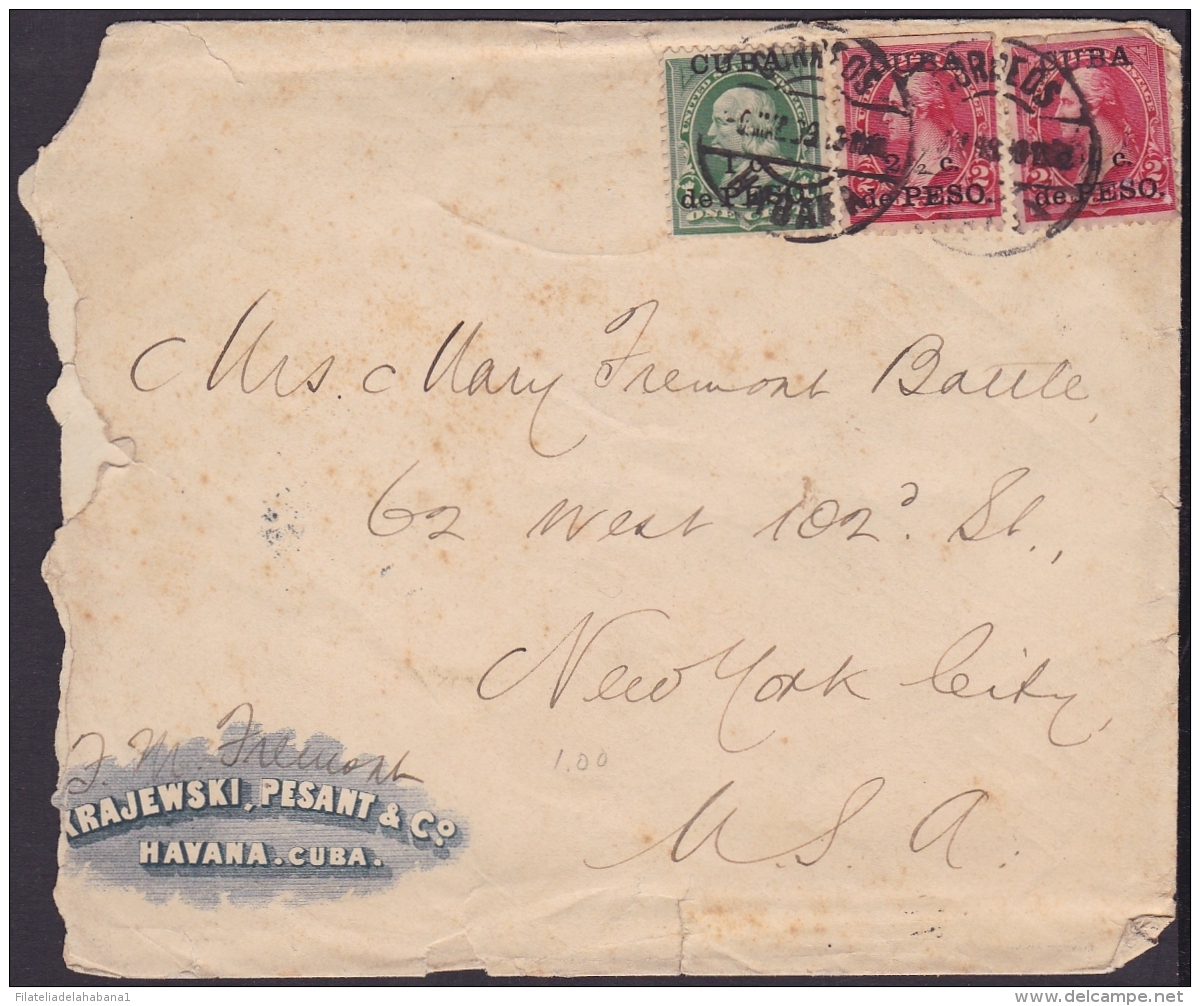 CUBA
1 c.
de PESO.
ONE
CUBA
2 ½ c.
de PESO.
2 2
CUBA
c.
de PESO.
2
CORREOS
Mrs. Mary Fremont Battle,
62 West 102d. St.,
New York City,
U. S. A.
1.00
F. M. Fremont
KRAJEWSKI, PESANT & Co.
HAVANA. CUBA.
Filateliadelahabana1
delcampe.net